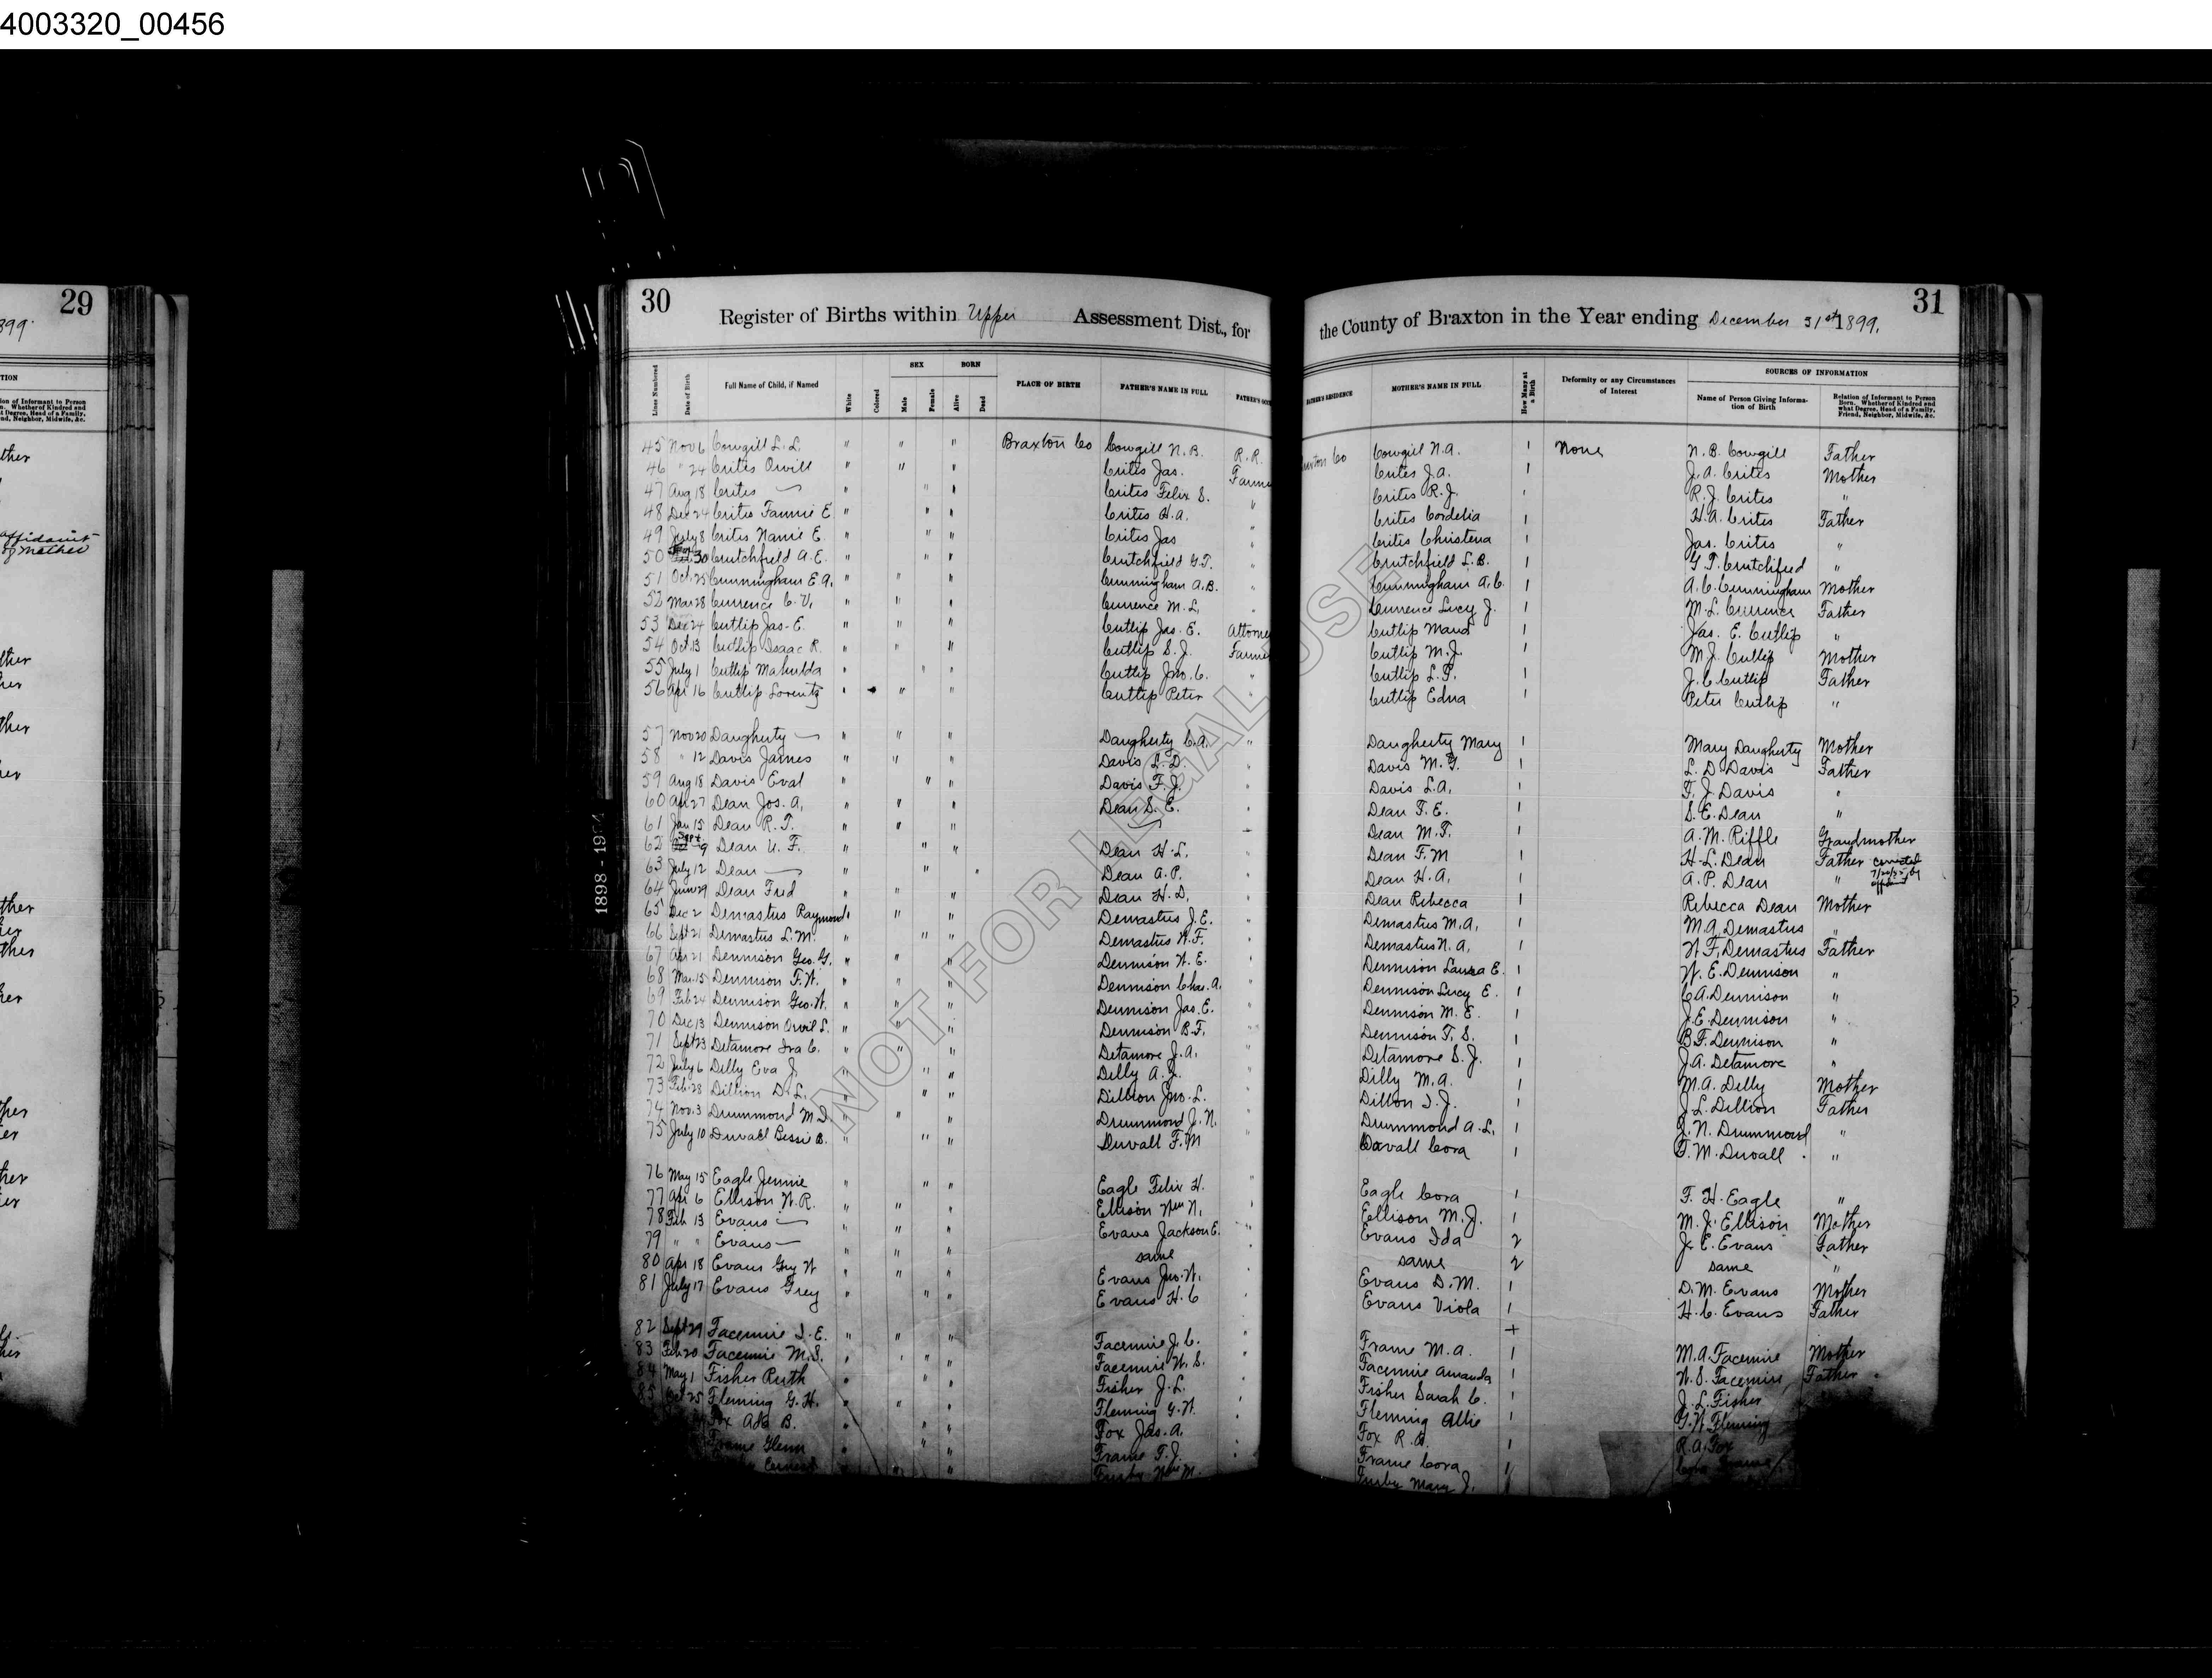 4003320_00456
29
1899.
30
Register of Births within Upper Assessment Dist., for
the County of Braxton in the Year ending December 31st 1899.
31
Lines Numbered
Date of Birth
Full Name of Child, if Named
White
Colored
SEX
Male
Female
BORN
Alive
Dead
PLACE OF BIRTH
FATHER'S NAME IN FULL
FATHER'S RESIDENCE
MOTHER'S NAME IN FULL
How Many at a Birth
Deformity or any Circumstances of Interest
SOURCES OF INFORMATION
Name of Person Giving Information of Birth
Relation of Informant to Person Born. Whether of Kindred and what Degree, Head of a Family, Friend, Neighbor, Midwife, &c.
45 Nov 6 Cowgill L. L. " " " Braxton Co Cowgill N. B. R. R. Cowgill N. a. 1 None N. B. Cowgill Father
46 " 24 Crites Orvill " " " Crites Jas. Crites J. a. 1 J. A. Crites Mother
47 Aug 18 Crites — " " " Crites Felix S. " Crites R. J. 1 R. J. Crites "
48 Dec 24 Crites Fannie E " " " Crites H. a. " Crites Cordelia 1 H. A. Crites Father
49 July 8 Crites Nanie E. " " " Crites Jas " Crites Christena 1 Jas. Crites "
50 30 Crutchfield A. E. " " " Crutchfield G. T. " Crutchfield L. B. 1 G T. Crutchfied "
51 Oct. 25 Cunningham E A. " " " Cunningham A. B. " Cunningham A. C. 1 A. C. Cunningham Mother
52 Mar 28 Currence C. V. " " " Currence M. L. " Currence Lucy J. 1 M. L. Currence Father
53 Dec 24 Cutlip Jas. E. " " " Cutlip Jas. E. Cutlip Maud 1 Jas. E. Cutlip "
54 Oct. 13 Cutlip Isaac R. " " " Cutlip S. J. Cutlip M. J. 1 M. J. Cutlip Mother
55 July 1 Cutlip Malulda " " " Cutlip Jno. C. " Cutlip L. P. 1 J. C Cutlip Father
56 Apr 16 Cutlip Lorentz " " " Cutlip Peter " Cutlip Edna 1 Peter Cutlip "
57 Nov 20 Daugherty — " " " Daugherty C. A. " Daugherty Mary 1 Mary Daugherty Mother
58 " 12 Davis James " " " Davis L. D. " Davis M. G. 1 L. D. Davis Father
59 Aug 18 Davis Eval " " " Davis F. J. " Davis L. A. 1 F. J Davis "
60 Apr 27 Dean Jos. A. " " " Dean S. E. " Dean F. E. 1 S. E. Dean "
61 Jan 15 Dean R. T. " " " — Dean M. F. 1 A. M. Riffle Grandmother
62 Sept 9 Dean U. F. " " " Dean H. L. " Dean F. M 1 H. L. Dean Father corrected
63 July 12 Dean — " " " Dean A. P. " Dean H. A. 1 A. P. Dean "
64 June 29 Dean Fred " " " Dean H. D. " Dean Rebecca 1 Rebecca Dean Mother
65 Dec 2 Demastus Raymond " " " Demastus J. E. " Demastus M. A. 1 M. A. Demastus "
66 Sept 21 Demastus L. M. " " " Demastus W. F. " Demastus N. A. 1 W. F. Demastus Father
67 Apr 21 Dennison Geo. G. " " " Dennison W. E. " Dennison Laura E. 1 W. E. Dennison "
68 Mar. 15 Dennison F. W. " " " Dennison Chas. A. " Dennison Lucy E. 1 C A. Dennison "
69 Feb 24 Dennison Geo. W. " " " Dennison Jas. E. " Dennison M. E. 1 J. E. Dennison "
70 Dec 13 Dennison Orvil L. " " " Dennison B. F. " Dennison T. S. 1 B F. Dennison "
71 Sept 23 Detamore Ira C. " " " Detamore J. A. " Detamore S. J. 1 J. A. Detamore "
72 July 6 Dilly Eva J. " " " Dilly A. J. " Dilly M. a. 1 M. A. Dilly Mother
73 Feb. 28 Dillion D. L. " " " Dillion Jno. L. " Dillon I. J. 1 J. L. Dillion Father
74 Nov. 3 Drummond M D " " " Drummond J. N. " Drummond A. L. 1 J. N. Drummond "
75 July 10 Duvall Bessie B. " " " Duvall F. M " Duvall Cora 1 F. M. Duvall "
76 May 15 Eagle Jennie " " " Eagle Felix H. " Eagle Cora 1 F. H. Eagle "
77 Apr 6 Ellison W. R. " " " Ellison Wm N. " Ellison M. J. 1 M. J. Ellison Mother
78 Feb 13 Evans — " " " Evans Jackson E. " Evans Ida 2 J. E. Evans Father
79 " " Evans — " " " same " same 2 same "
80 Apr 18 Evans Guy W " " " Evans Jno. W. " Evans D. M. 1 D. M. Evans Mother
81 July 17 Evans Grey " " " Evans H. C " Evans Viola 1 H. C. Evans Father
82 Sept 29 Facemire I. E. " " " Facemire J. C. " Frame M. a. 1 M. A. Facemire Mother
83 Feb 20 Facemire M. S. " " " Facemire W. S. " Facemire Amanda 1 W. S. Facemire Father
84 May 1 Fisher Ruth " " " Fisher J. L. " Fisher Sarah C. 1 J. L. Fisher
85 Oct 25 Fleming G. H. " " " Fleming G. W. " Fleming Allie 1 G. W. Fleming
Fox Ada B. " " " Fox Jas. A. " Fox R. A. 1 R. A. Fox
Frame Glenn " " " Frame T. J. " Frame Cora 1
Mary J.
NOT FOR LEGAL USE